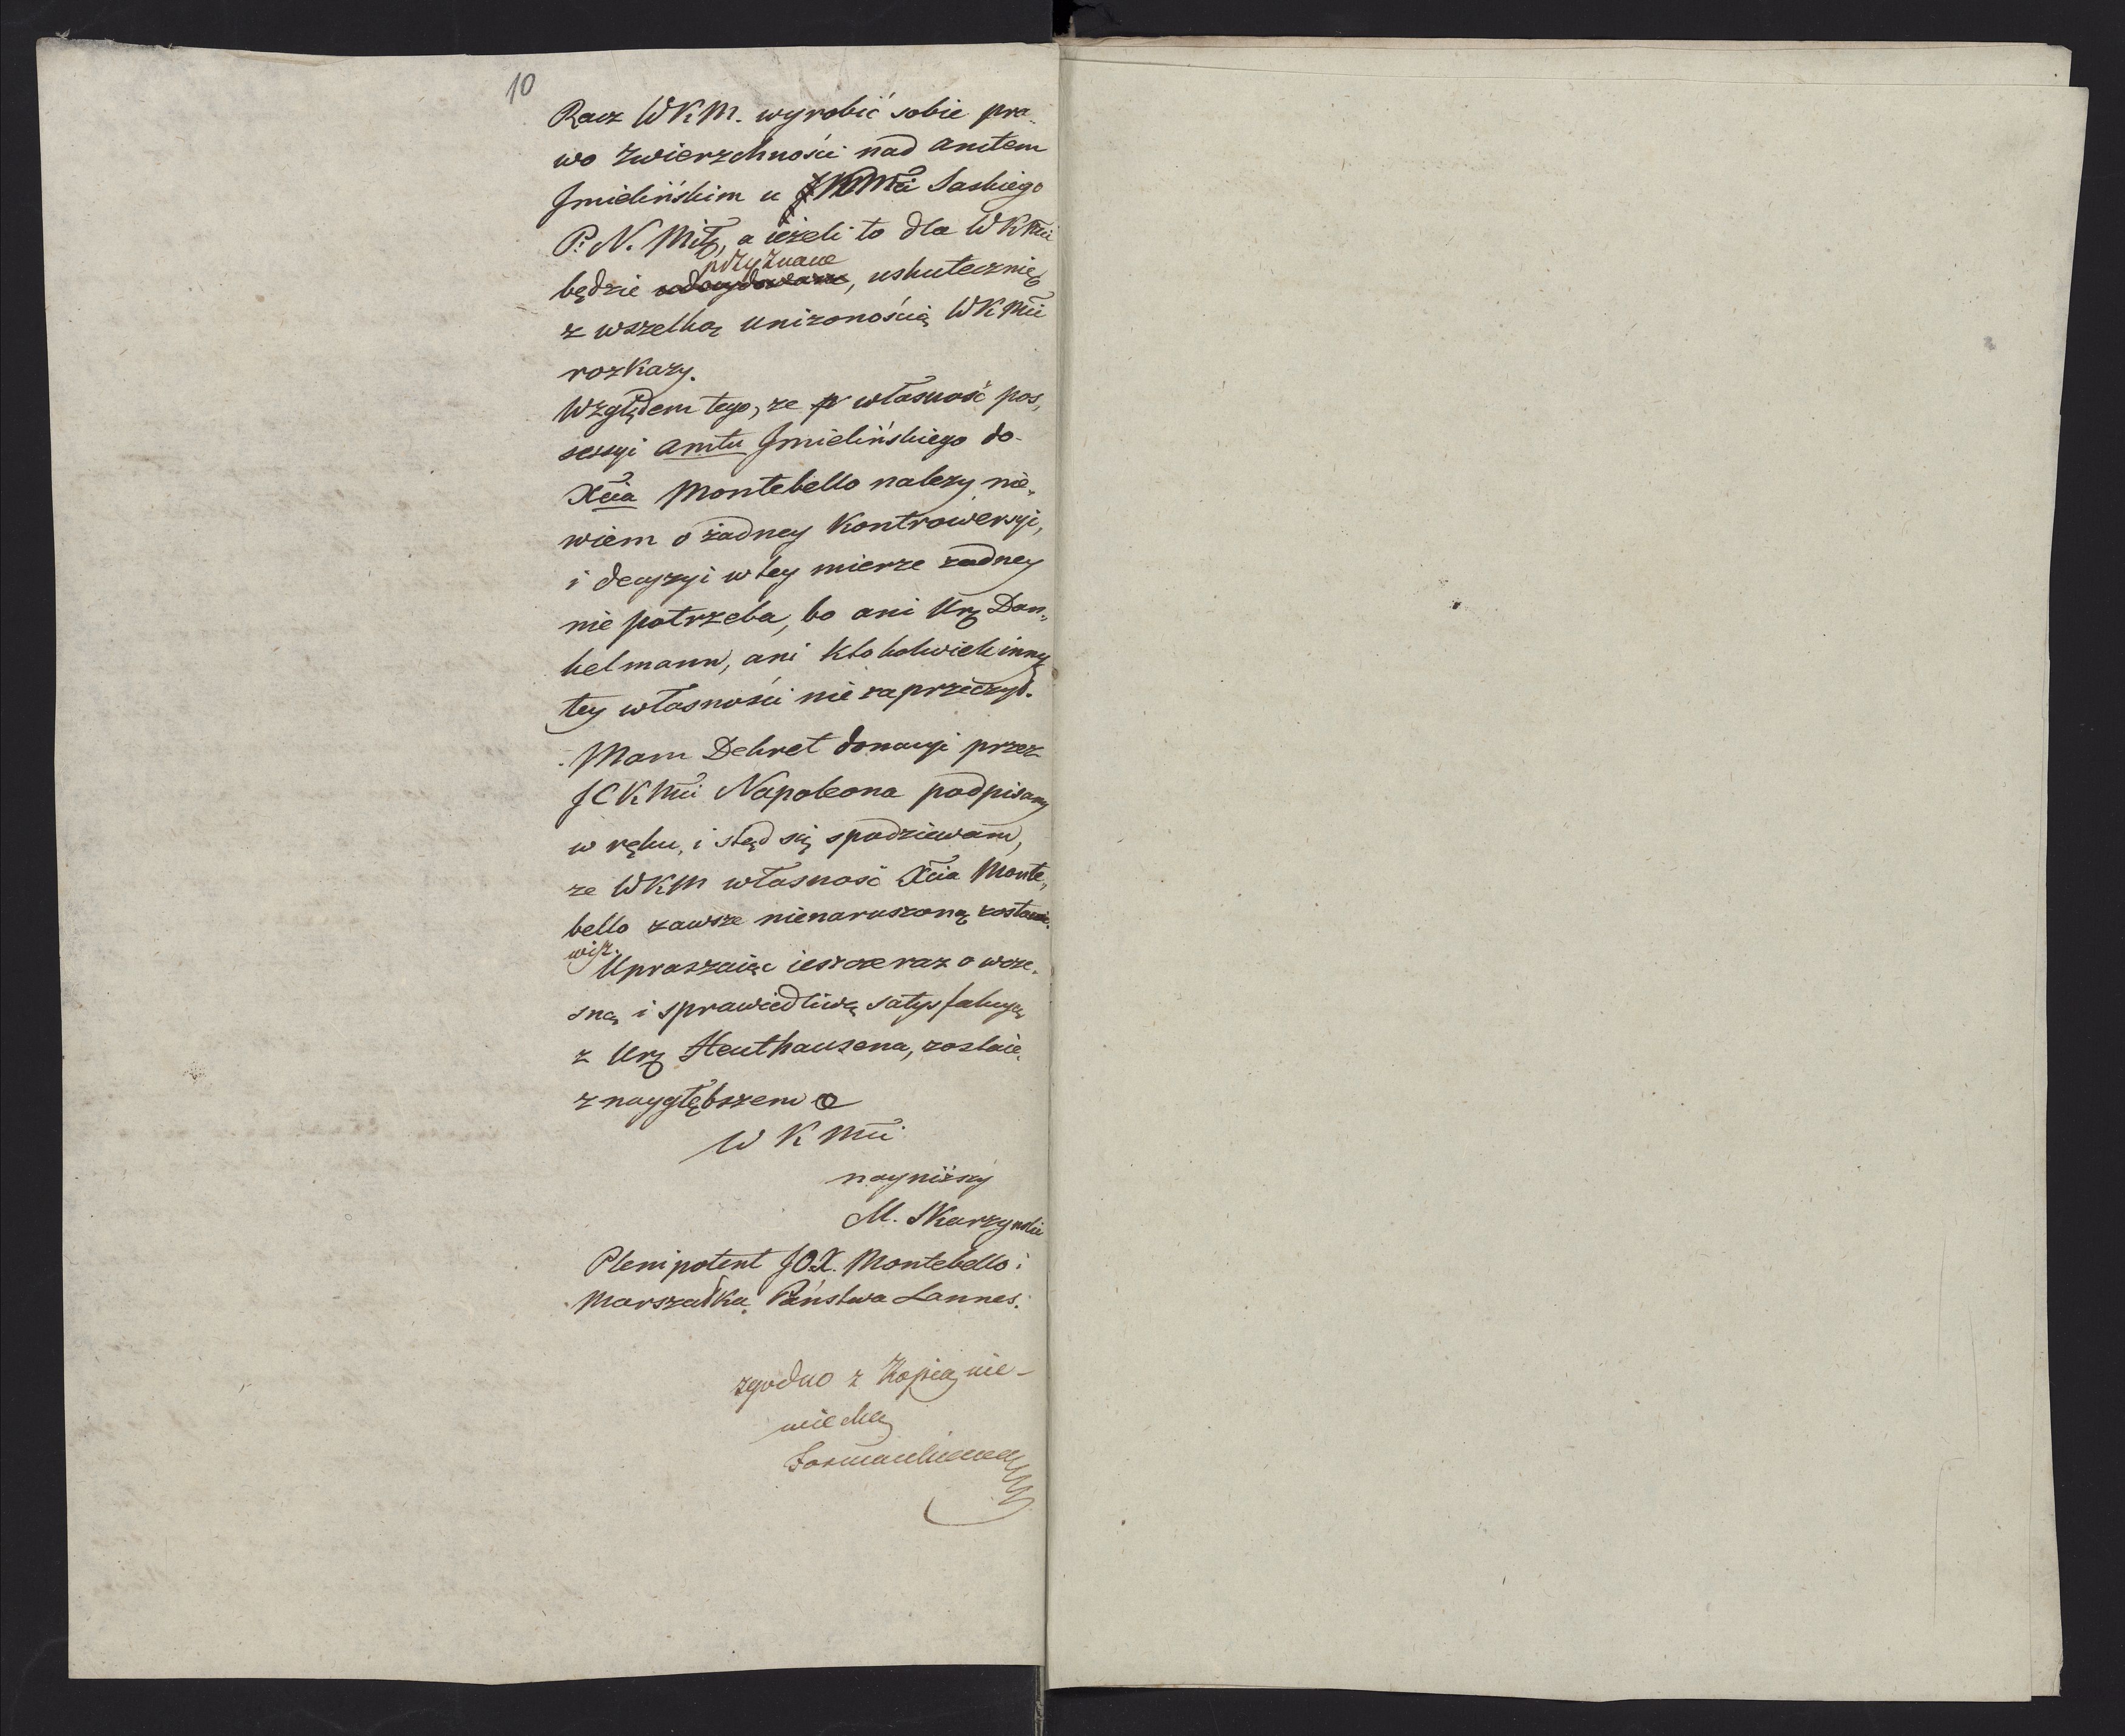 10
Racz WKM. wyrobić sobie pra-
wo zwierzchności nad amtem
Jmielińskim u JKMci Saskiego
P. N. Miłł, a ieżeli to dla WKMci
przyznane
będzie udecydowane, uskutecznię
z wszelką unizonością WKMci
rozkazy.
Względem tego, ze własność pos,
sessyi amtu Jmielińskiego do-
Xcia Montebello nalezy nie,
wiem o żadney Kontrowersyi,
i decyzyi w tey mierze zadney
nie potrzeba, bo ani Ur. Dan„
kelmann, ani ktokolwiek inny
tey własności nie zaprzeczył.
Mam Dekret donacyi przez
JCKMci Napoleona podpisany
w ręku, i stąd się spodziewam,
ze WKM własność Xcia Monte,
bello zawsze nienaruszoną zostawi.
wisz.
Upraszaiąc ieszcze raz o wcze.
sną i sprawiedliwą satysfakcyą
z Ur. Heuthausena, zostaię
z naygłębszem
WKMci
nayniższy
M. Skarzynski
Plenipotent JOX. Montebello i
Marszałka Państwa Lannes.
zgodno z Kopią nie-
miecką